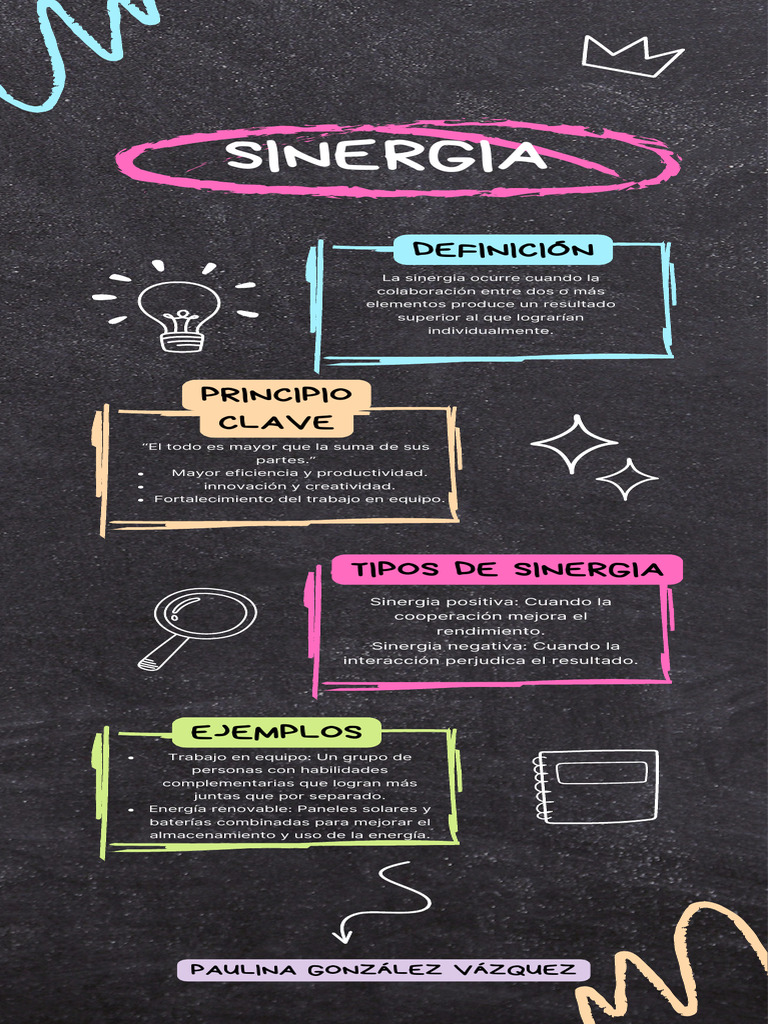 SINERGIA
DEFINICIÓN
La sinergia ocurre cuando la
colaboración entre dos o más
elementos produce un resultado
superior al que lograrían
individualmente.
PRINCIPIO
CLAVE
“El todo es mayor que la suma de sus
partes.”
• Mayor eficiencia y productividad.
• innovación y creatividad.
• Fortalecimiento del trabajo en equipo.
TIPOS DE SINERGIA
Sinergia positiva: Cuando la
cooperación mejora el
rendimiento.
Sinergia negativa: Cuando la
interacción perjudica el resultado.
EJEMPLOS
• Trabajo en equipo: Un grupo de
personas con habilidades
complementarias que logran más
juntas que por separado.
• Energía renovable: Paneles solares y
baterías combinadas para mejorar el
almacenamiento y uso de la energía.
PAULINA GONZÁLEZ VÁZQUEZ